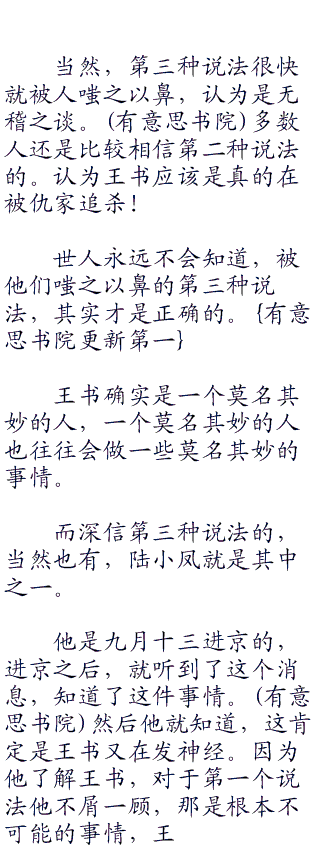 当然，第三种说法很快
就被人嗤之以鼻，认为是无
稽之谈。(有意思书院)多数
人还是比较相信第二种说法
的。认为王书应该是真的在
被仇家追杀！
世人永远不会知道，被
他们嗤之以鼻的第三种说
法，其实才是正确的。{有意
思书院更新第一}
王书确实是一个莫名其
妙的人，一个莫名其妙的人
也往往会做一些莫名其妙的
事情。
而深信第三种说法的，
当然也有，陆小凤就是其中
之一。
他是九月十三进京的，
进京之后，就听到了这个消
息，知道了这件事情。(有意
思书院)然后他就知道，这肯
定是王书又在发神经。因为
他了解王书，对于第一个说
法他不屑一顾，那是根本不
可能的事情，王